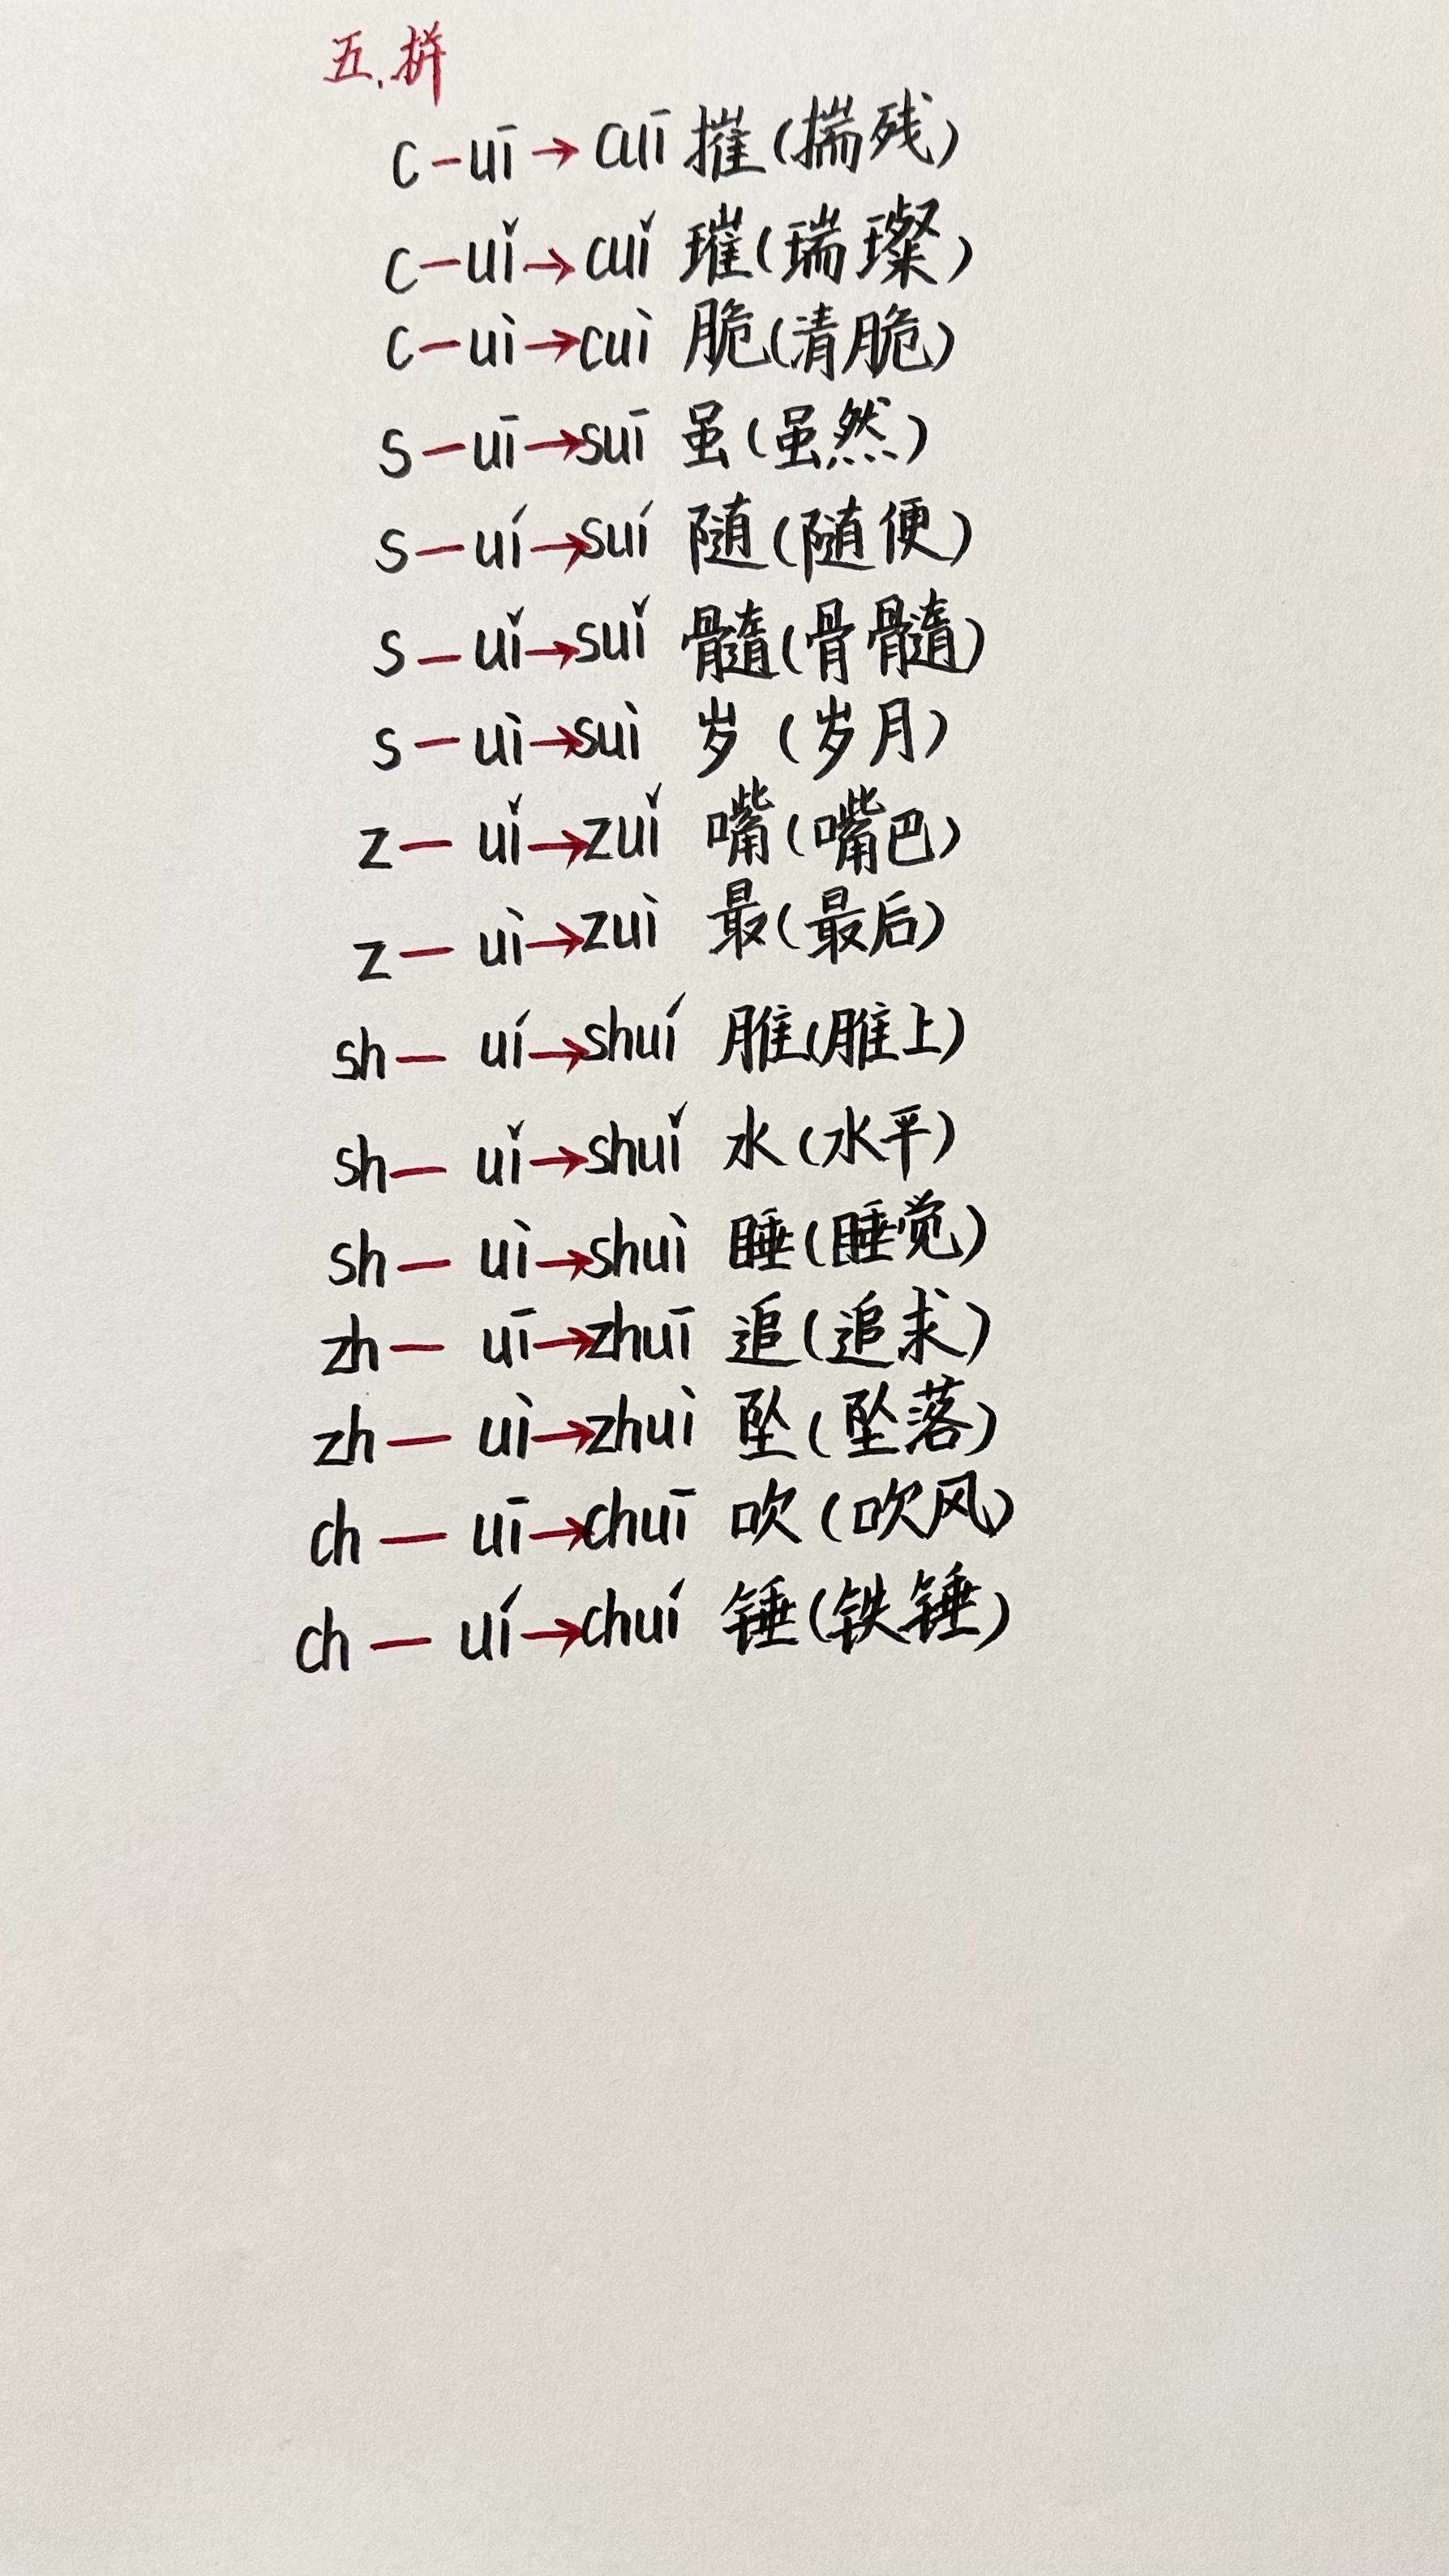 五.拼
c-uī→cuī 摧(揣残)
c-uǐ→cuǐ 璀(瑞璨)
c-uì→cuì 脆(清脆)
s-uī→suī 虽(虽然)
s-uí→suí 随(随便)
s-uǐ→suǐ 髓(骨髓)
s-uì→suì 岁(岁月)
z-uǐ→zuǐ 嘴(嘴巴)
z-uì→zuì 最(最后)
sh-uí→shuí 脽(脽上)
sh-uǐ→shuǐ 水(水平)
sh-uì→shuì 睡(睡觉)
zh-uī→zhuī 追(追求)
zh-uì→zhuì 坠(坠落)
ch-uī→chuī 吹(吹风)
ch-uí→chuí 锤(铁锤)